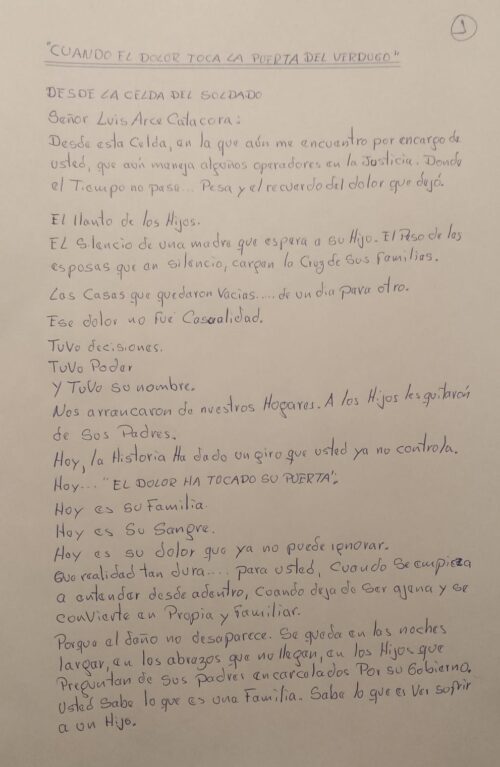 1
"CUANDO EL DOLOR TOCA LA PUERTA DEL VERDUGO"
DESDE LA CELDA DEL SOLDADO
Señor Luis Arce Catacora:
Desde esta Celda, en la que aún me encuentro por encargo de
usted, que aun maneja algunos operadores en la Justicia. Donde
el Tiempo no pasa... Pesa y el recuerdo del dolor que dejó.
El llanto de los Hijos.
EL Silencio de una madre que espera a su Hijo. El Peso de las
esposas que en silencio, cargan la Cruz de sus familias.
Las Casas que quedaron Vacias.... de un dia para otro.
Ese dolor no fué Casualidad.
TuVo decisiones.
TuVo Poder
Y TuVo su nombre.
Nos arrancaron de nuestros Hogares. A los Hijos les quitaron
de Sus Padres.
Hoy, la Historia Ha dado un giro que usted ya no controla.
Hoy... "EL DOLOR HA TOCADO SU PUERTA".
Hoy es su Familia.
Hoy es Su Sangre.
Hoy es su dolor que ya no puede ignorar.
Que realidad tan dura.... para usted, Cuando Se empieza
a entender desde adentro, Cuando deja de Ser ajena y se
conVierte en Propia y Familiar.
Porque el daño no desaparece. Se queda en las noches
largar, en los abrazos que no llegan, en los Hijos que
Preguntan de Sus padres encarcelados Por su Gobierno.
Usted Sabe lo que es una Familia. Sabe lo que es Ver sufrir
a un Hijo.